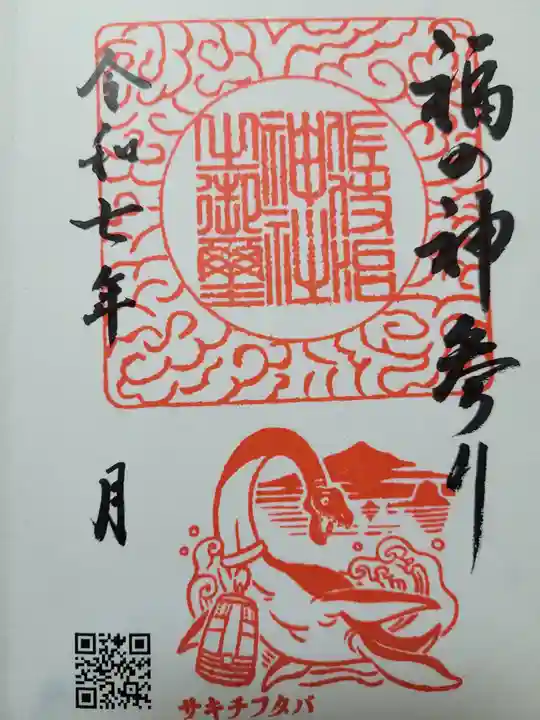 福の神参り
令和七年 月
神社
之御璽
サキチフタバ